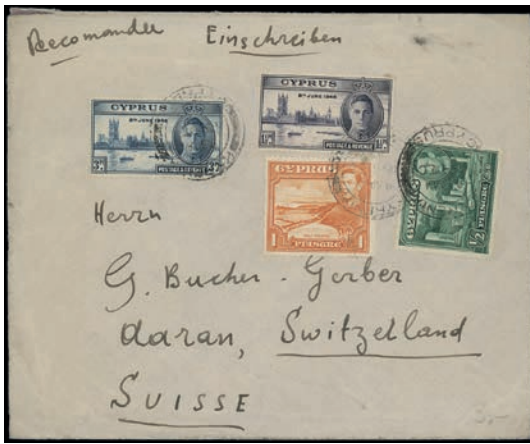 Recomandee Einschreiben
CYPRUS
8TH JUNE 1946
POSTAGE & REVENUE
CYPRUS
8TH JUNE 1946
POSTAGE & REVENUE
CYPRUS
1 PIASTRE
CYPRUS
1/2 PIASTRE
CYPRUS
Herrn
G. Bucher-Gerber
aaran, Switzerland
SUISSE
3.-